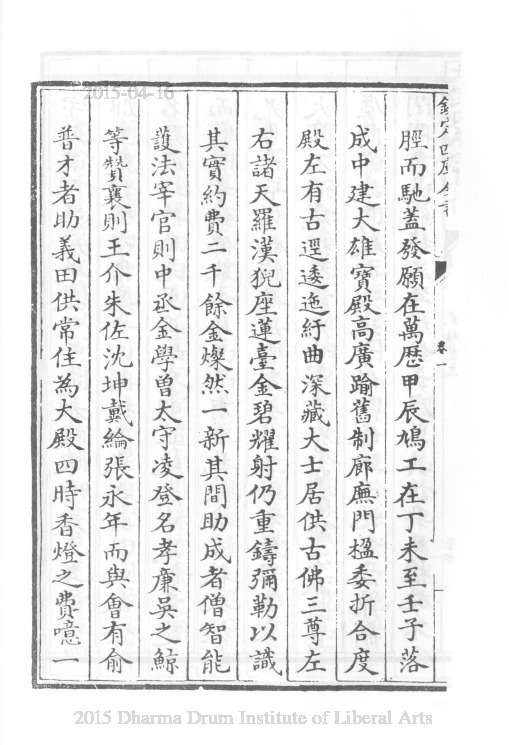 2015-04-16
欽定四庫全書
卷一
脛而馳蓋發願在萬歷甲辰鳩工在丁未至壬子落
成中建大雄寳殿高廣踰舊制廊廡門楹委折合度
殿左有古逕逶迤紆曲深藏大士居供古佛三尊左
右諸天羅漢猊座蓮臺金碧耀射仍重鑄彌勒以識
其實約費二千餘金燦然一新其間助成者僧智能
䕶法宰官則中丞金學曽太守凌登名孝廉吳之鯨
等贊襄則王介朱佐沈坤戴綸張永年而與會有俞
普才者助義田供常住為大殿四時香燈之費噫一
2015 Dharma Drum Institute of Liberal Arts